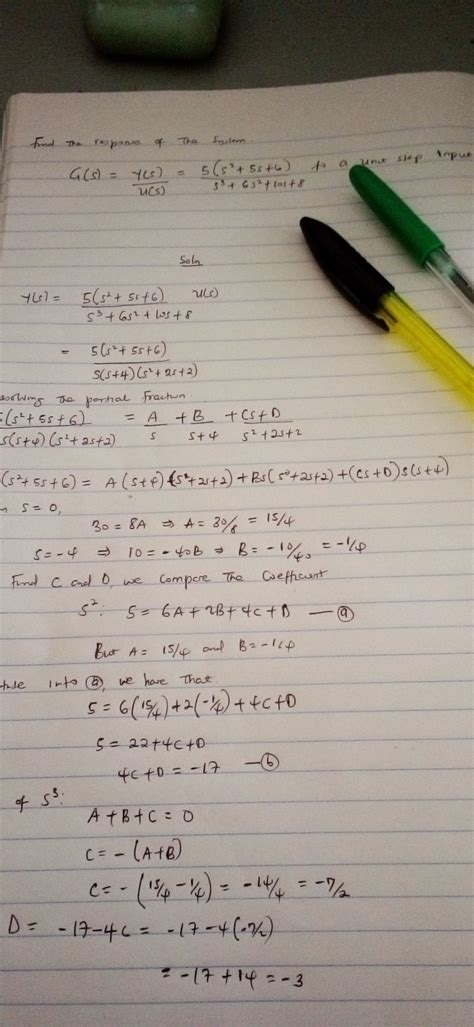 Find the response of the System
G(s) = Y(s)/U(s) = 5(s² + 5s + 6)/s³ + 6s² + 10s + 8 to a unit step input
Soln
Y(s) = 5(s² + 5s + 6)/s³ + 6s² + 10s + 8 U(s)
= 5(s² + 5s + 6)/s(s+4)(s² + 2s + 2)
The partial fraction
(s² + 5s + 6)/s(s+4)(s² + 2s + 2) = A/s + B/s+4 + Cs+D/s² + 2s + 2
(s² + 5s + 6) = A(s+4)(s² + 2s + 2) + Bs(s² + 2s + 2) + (Cs + D)s(s+4)
s = 0,
30 = 8A ⇒ A = 30/8 = 15/4
s = -4 ⇒ 10 = -40B ⇒ B = -10/40 = -1/4
Find C and D, we compare the coefficient
s²: 5 = 6A + 2B + 4C + D — (a)
But A = 15/4 and B = -1/4
into (a), we have that
5 = 6(15/4) + 2(-1/4) + 4C + D
5 = 22 + 4C + D
4C + D = -17 — (b)
of s³:
A + B + C = 0
C = -(A+B)
C = -(15/4 - 1/4) = -14/4 = -7/2
D = -17 - 4C = -17 - 4(-7/2)
= -17 + 14 = -3